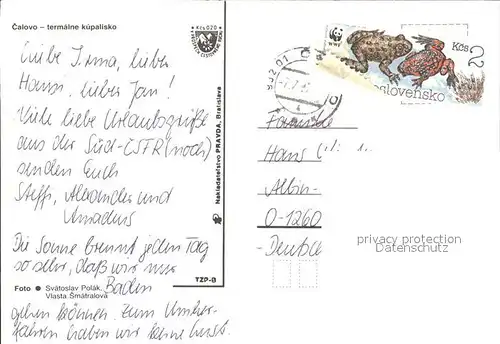 Čalovo – termálne kúpalisko
Kčs 0,20
Liebe Irma, lieber
Hans, lieber Jan!
Viele liebe Urlaubsgrüße
aus der Süd-ČSTR (noch)
senden Euch
Steffi, Alexander und
Amadeus
Die Sonne brennt jeden Tag
so sehr, daß wir nur
Baden
gehen können. Zum Umher-
fahren haben wir keine Lust.
Foto ● Svätoslav Polák,
Vlasta Šmátralová
TZP-B
Nakladateľstvo PRAVDA, Bratislava
WWF
Kčs 2
oslovensko
932 01
Familie
Hans
Albin-
O-1260
-Deutsch
privacy protection
Datenschutz